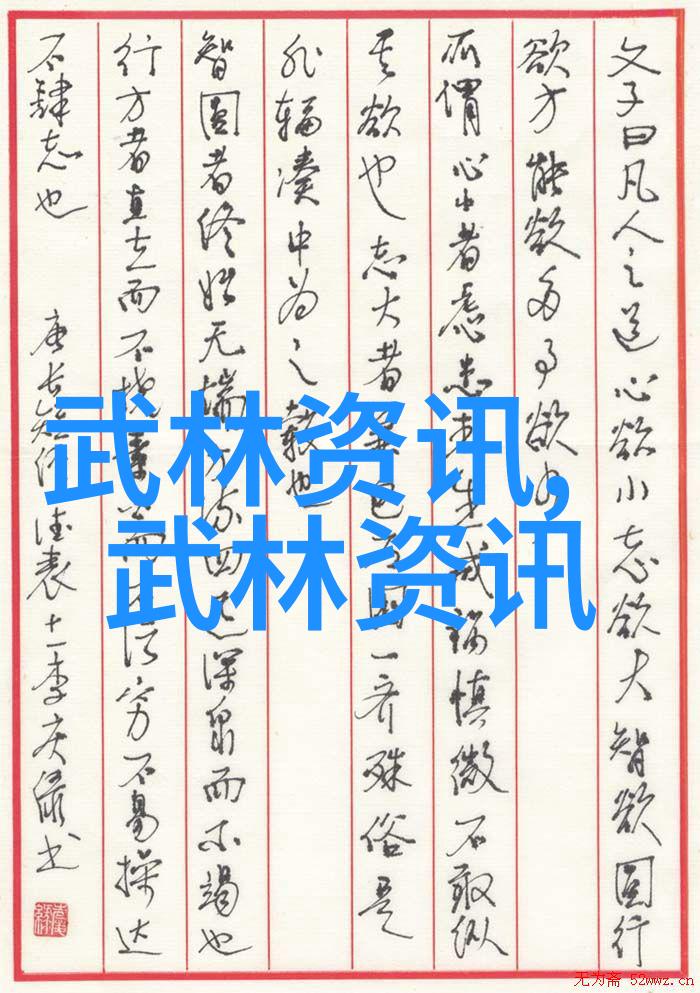 文子曰凡人之道心欲小志欲大智欲圆行
欲方能欲多事欲
所谓心小者虑患未生戒祸慎微不敢纵
其欲也志大者兼包万国一齐殊俗是
非辐凑中为之毂也
智圆者终始无端方流四远深泉而不竭也
行方者直立而不挠素白而不污穷不易操达
不肆志也
唐长短经德表十一李庆书
武林资讯,
武林资讯
无为斋 52wwz.cn